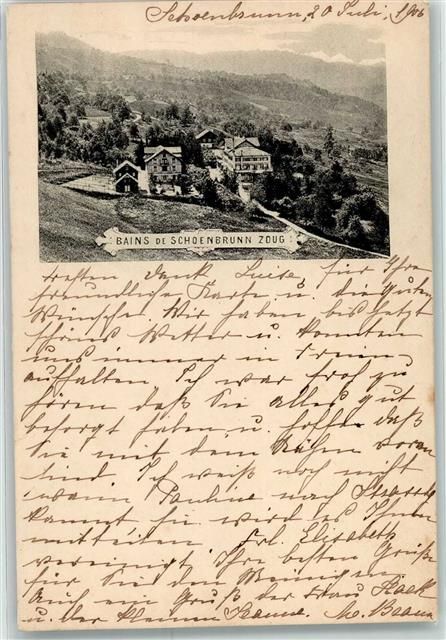 Schoenbrunn, 20 Juli, 1906
BAINS DE SCHOENBRUNN ZOUG
Dank Luise, für Ihre
freundliche Karte u. die guten
Wünsche. Wir haben bis jetzt
schönes Wetter u. konnten
uns immer im Freien
aufhalten. Ich war froh zu
hören daß Sie alles gut
besorgt haben u. hoffe daß
Sie mit dem Nähen voran
sind. Ich weiß noch nicht
wann Pauline nach
kommt sie wird es Ihnen
mitteilen. Frl. Elisabeth
vereinigt Ihre besten Grüße
für Sie den Meinigen
Auch ein Gruß der Frau
u. der kleinen